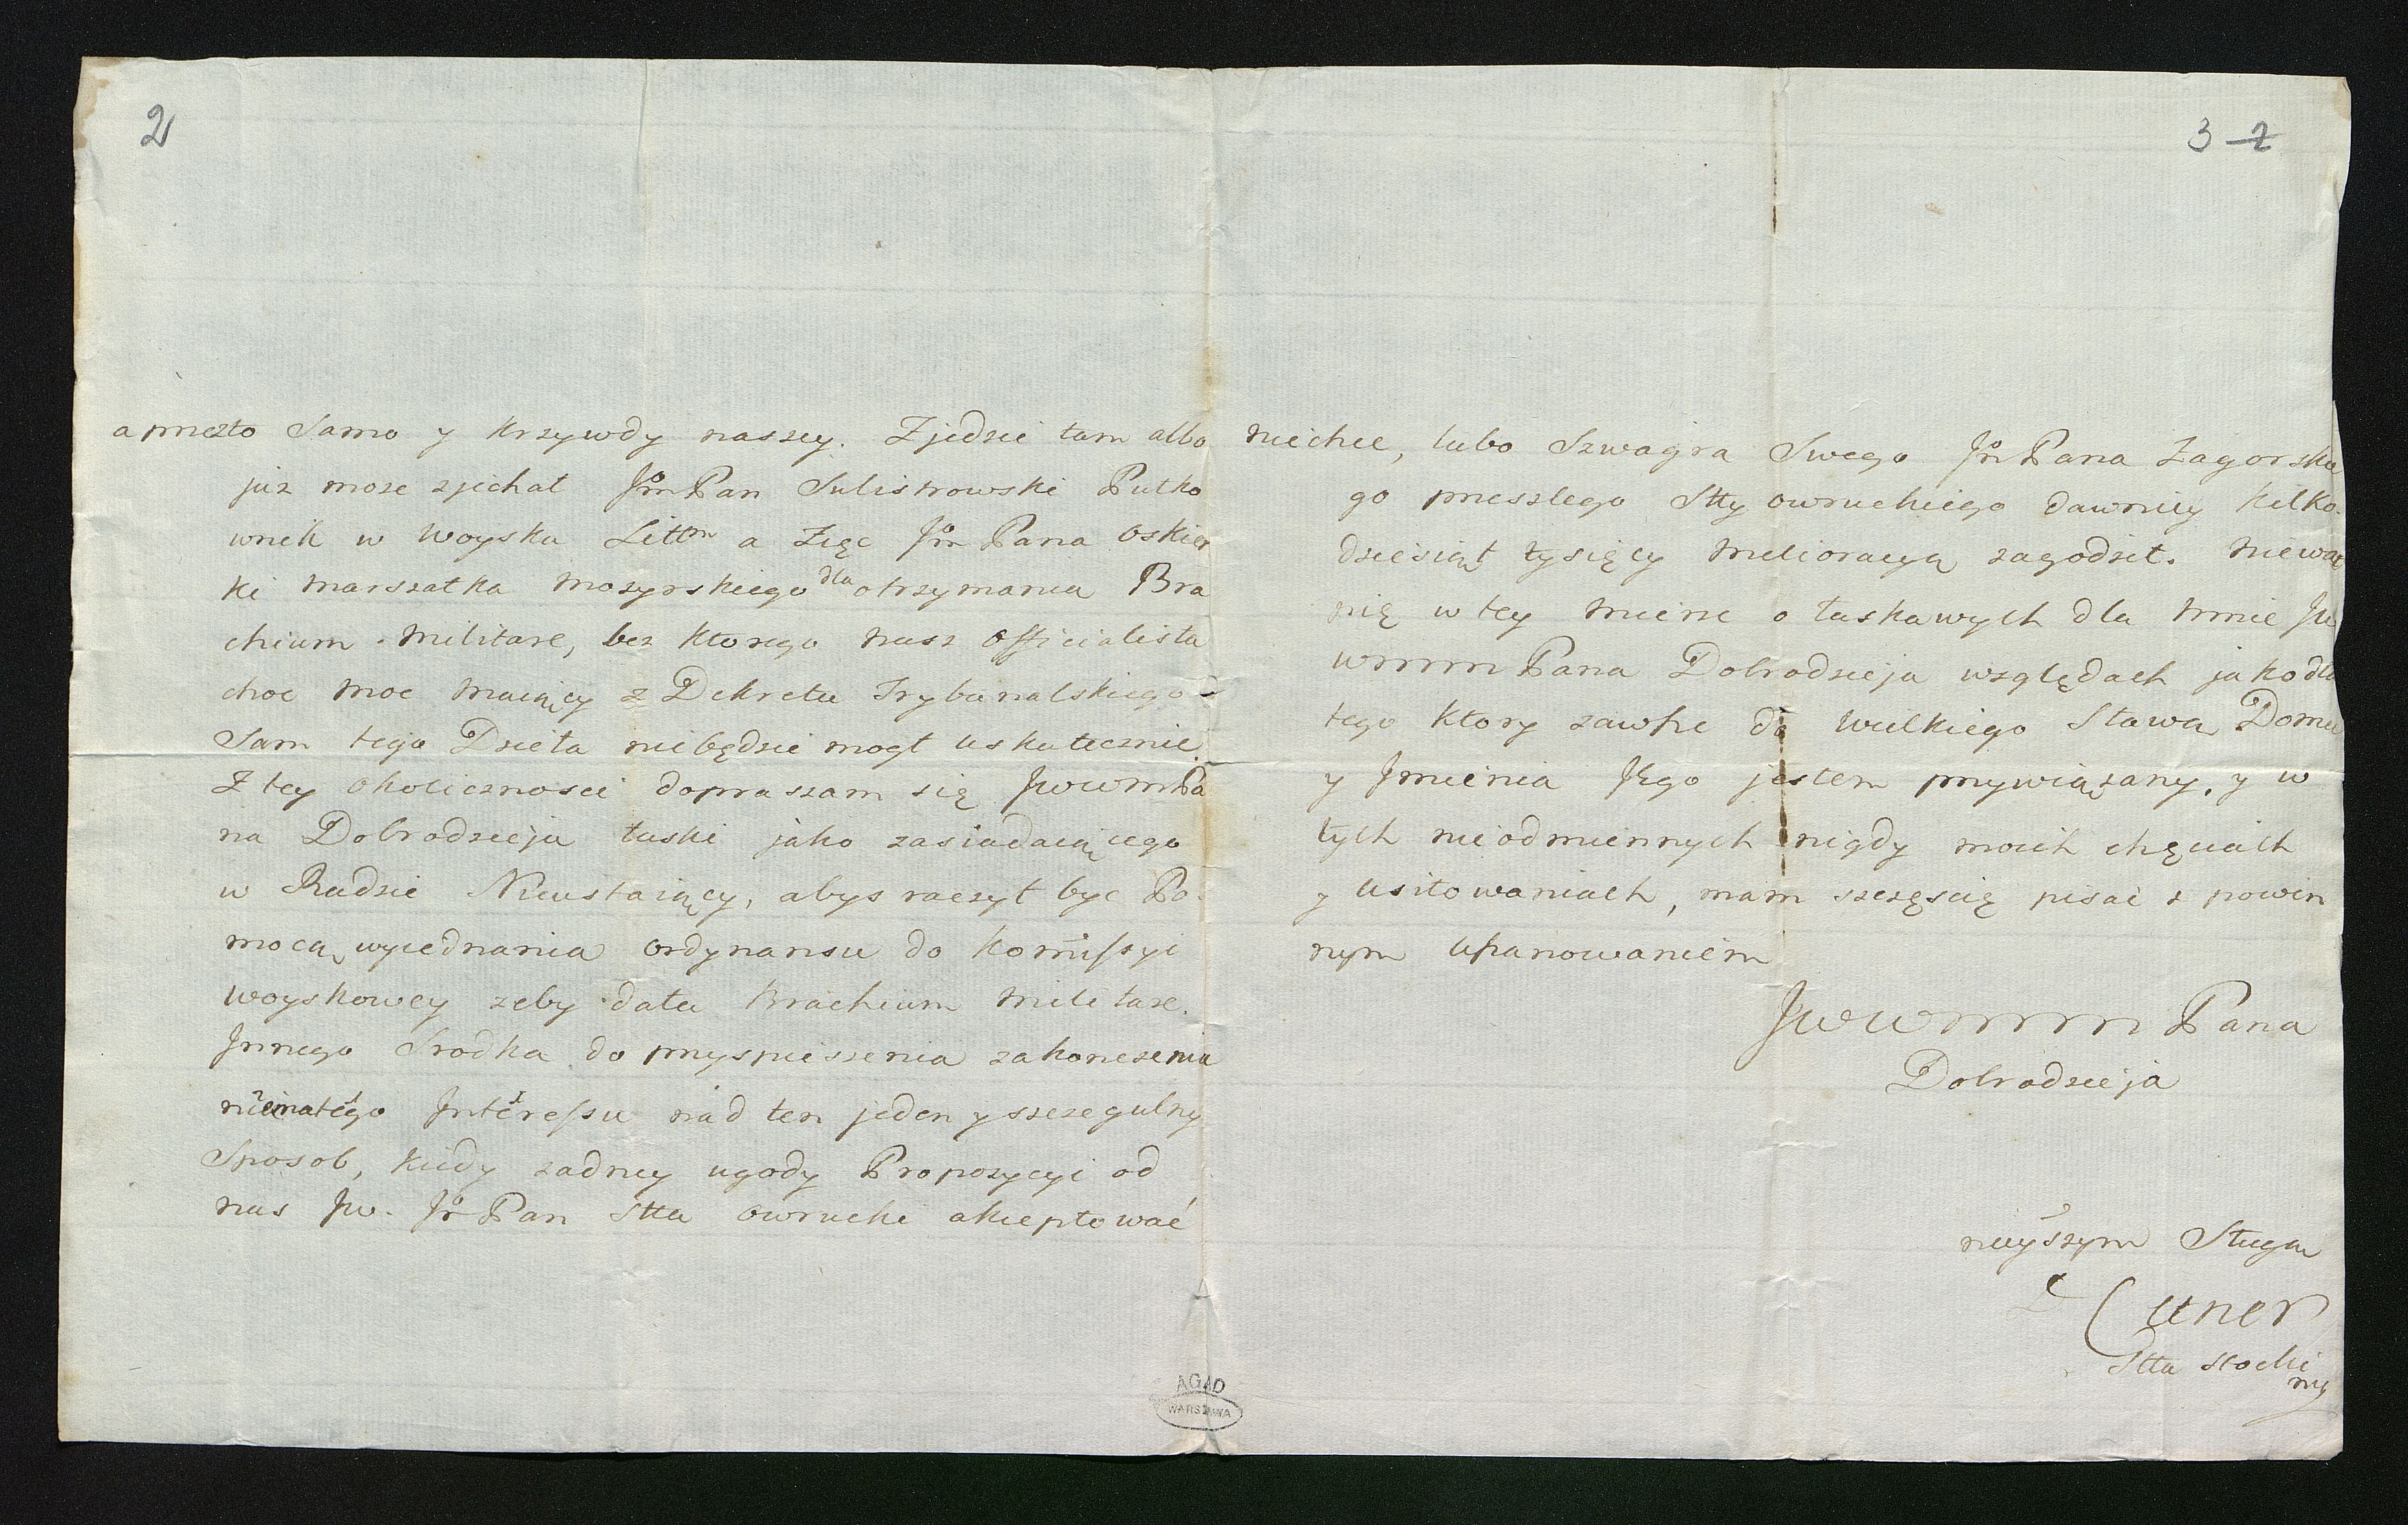 2
a przezto Samo y Krzywdy naszey. Zjedzie tam albo
juz moze zjechał Jm̊Pan Sulistrowski Pułko
wnik w Woysku Littm a Zięc Jm̊ Pana Oskier
ki Marszałka Mozyrskiego dla otrzymania Bra
chium Militare, bez ktorego nasz Officialista
choc moc maiący z Dekretu Trybunalskiego
Sam tego Dzieła niebędzie mogł uskutecznic.
Z tey okolicznosci dopraszam się JwwmPa
na Dobrodzieja łaski jako zasiadaiącego
w Radzie Nieustaiący, abys raczył byc Po-
mocą wyiednania ordynansu do Kom̃issyi
Woyskowey zeby dała Brachium Militare.
Jnnego Srodka do przyspieszenia zakonczenia
niemałego Jnteressu nad ten jeden y szczegulny
Sposob, kiedy zadney ugody Propozycyi od
nas Jw. Jm̊ Pan Stta Owrucki akceptować
3 2
niechce, lubo Szwagra Swego Jm̊ Pana Zagorskie
go przeszlego Stty owruckiego dawniey kilko-
dziesiąt tysięcy Melioracyą zagodził. Niewąt
pię w tey mierze o łaskawych dla mnie Jw
wmm Pana Dobrodzieja względach jako dla
tego ktory zawsze do Wielkiego Sławą Domu
y Jmienia Jego jestem przywiązany, y w
tych nieodmiennych nigdy moich chęciach
y usiłowaniach, mam szczęscię pisać z powin
nym uszanowaniem
Jwwmm Pana
Dobrodzieja
nayszym Sługą
Cetner
Stta Stocki
mp
AGAD
WARSZAWA